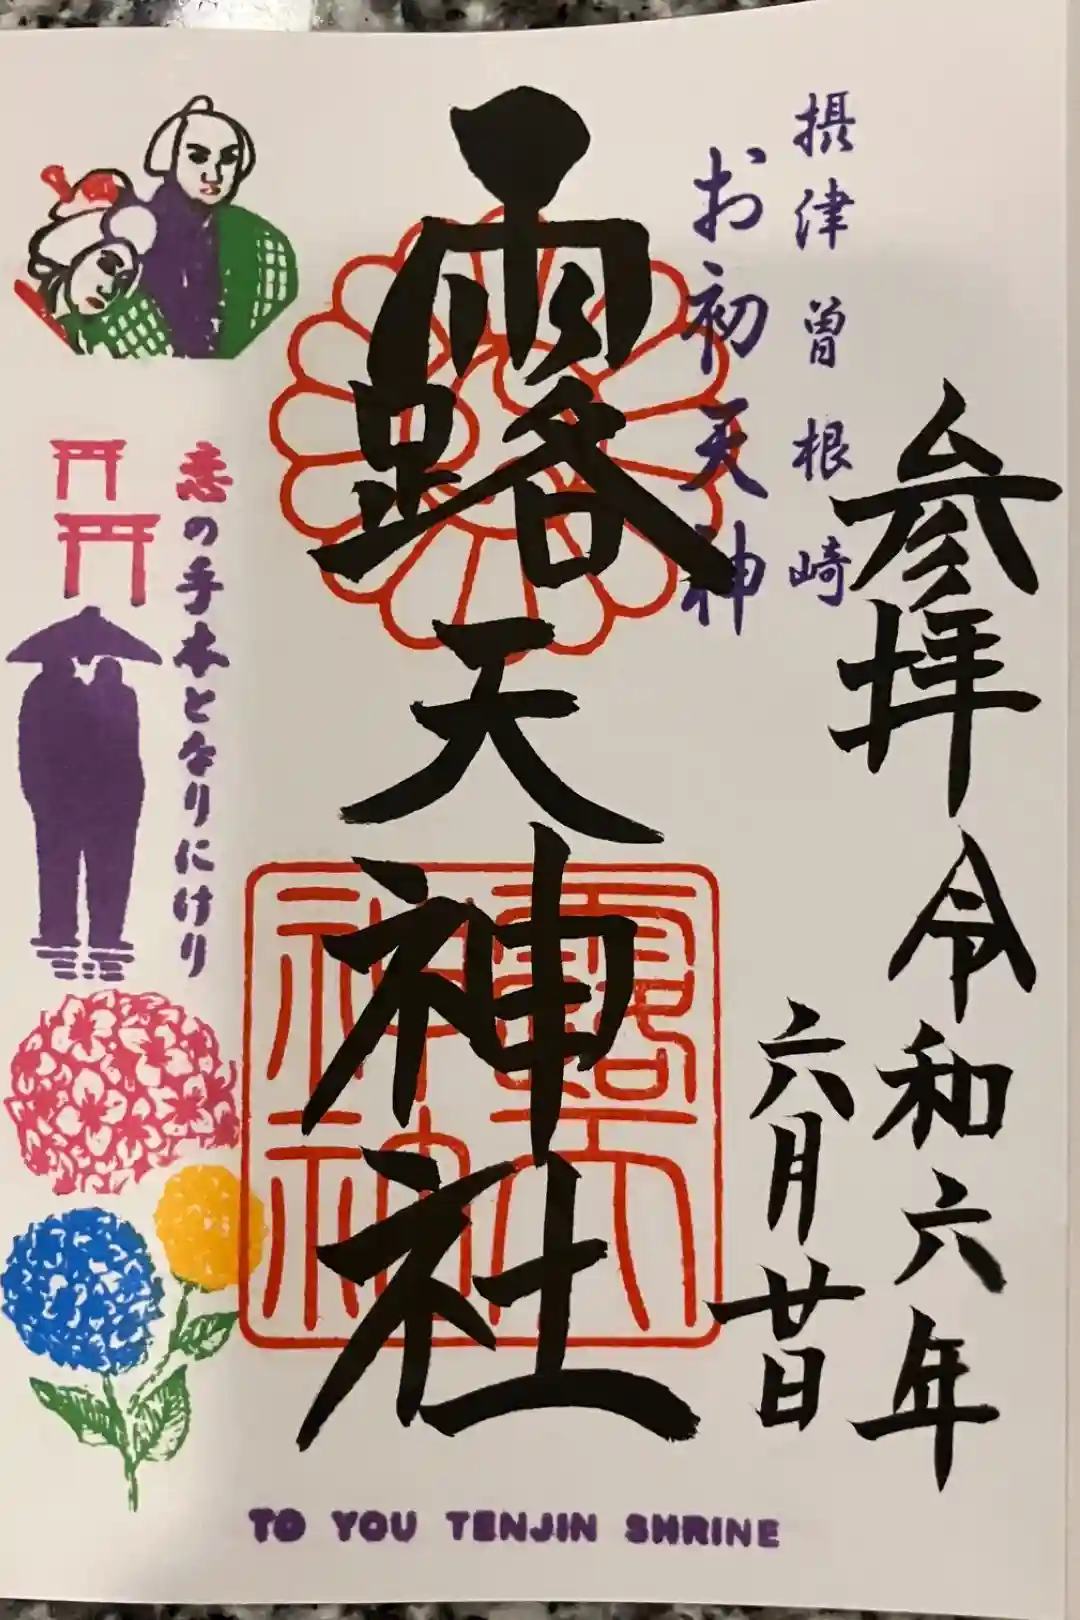 参拝 令和六年
六月廿日
摂津 曽根崎
お初天神
露天神社
露天
神社
恋の手本となりにけり
TO YOU TENJIN SHRINE